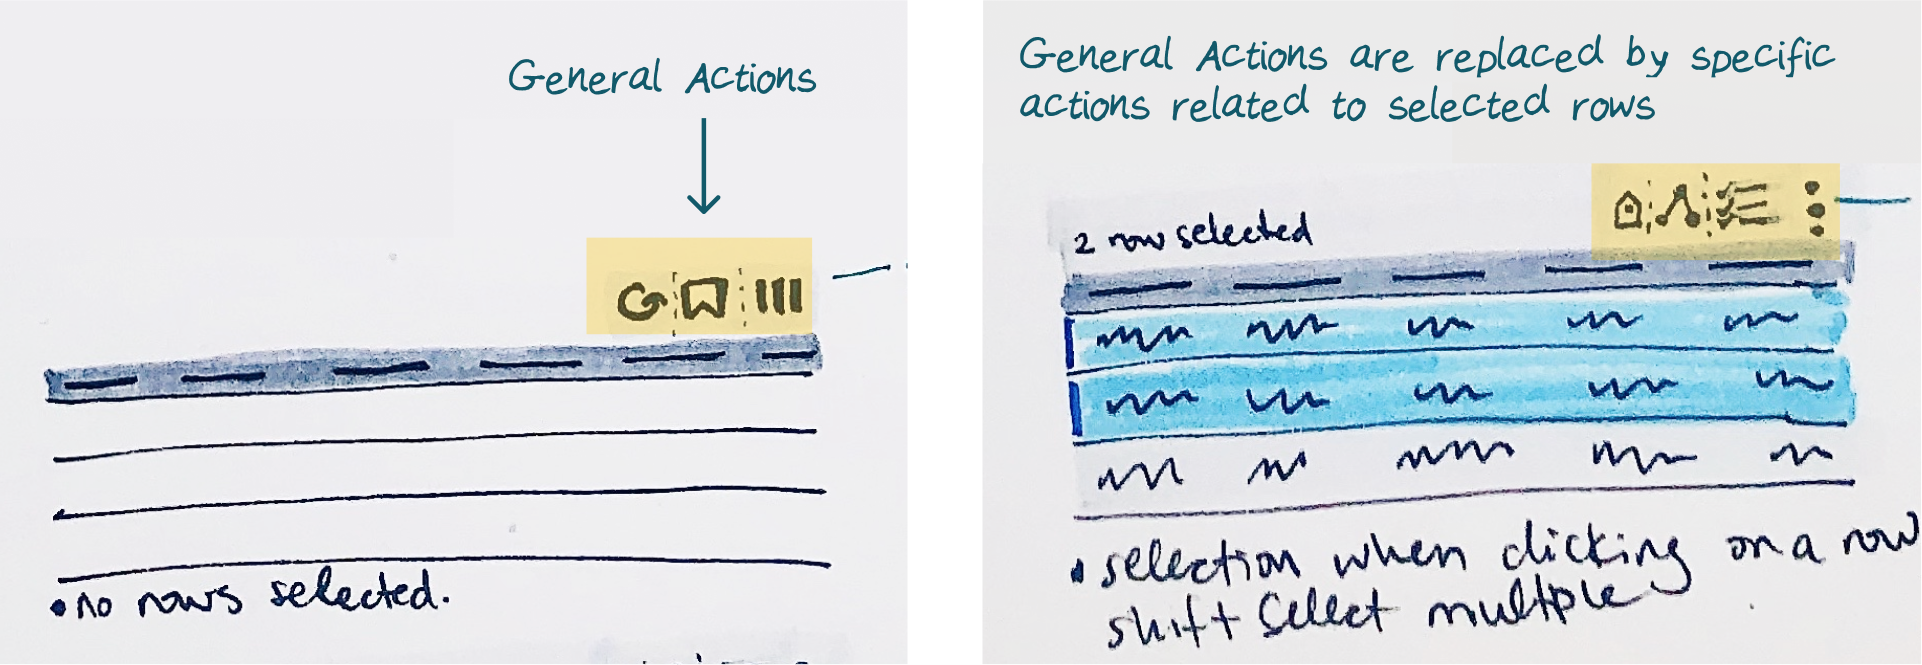 General Actions
• no rows selected.
General Actions are replaced by specific
actions related to selected rows
2 row selected
• selection when clicking on a row
shift select multiple